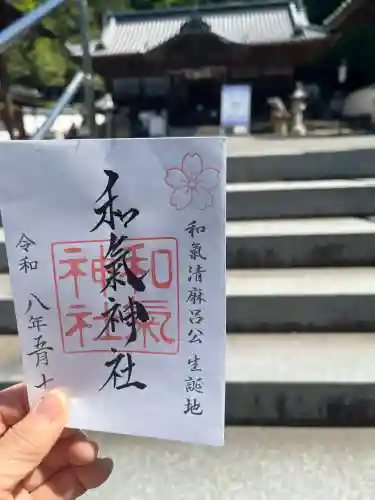 和氣清麻呂公 生誕地
和氣神社
和氣
神社
令和 八年 五月 十